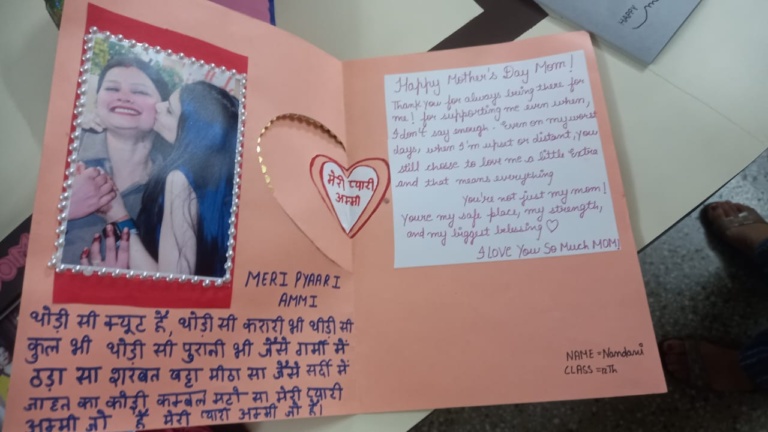 HAPPY
मेरी प्यारी
अम्मी
MERI PYAARI
AMMI
थोड़ी सी क्यूट है, थोड़ी सी करारी भी थोड़ी सी
कुल भी थोड़ी सी पुरानी भी जैसे गर्मी में
ठंडा सा शरबत खट्टा मीठा सा जैसे सर्दी में
का कोई कम्बल सा मेरी प्यारी
अम्मी जो है मेरी प्यारी अम्मी जो है।
Happy Mother's Day Mom!
Thank you for always being there for
me! for supporting me even when,
I don't say enough. Even on my worst
days, when I'm upset or distant, you
still choose to love me a little
and that means everything
You're not just my mom!
You're my safe place, my strength,
and my biggest blessing ♡
I LOVE YOU SO MUCH MOM!
NAME = Nandani
CLASS = 11Th